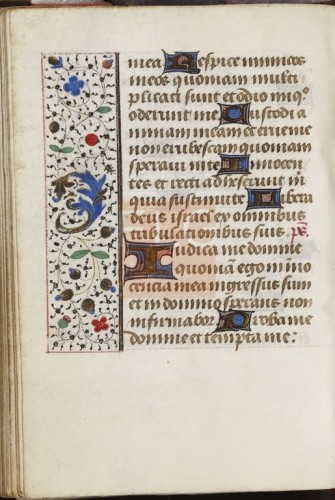 mea Respice inimicos
meos quoniam multi
plicati sunt et odio iniq°
oderunt me Custodi a
nimam meam et erue me
non erubescam quoniam
speravi in te Innocen
tes et recti adheserunt m̄
quia sustinui te Libera
deus israel ex omnibus
tribulationibus suis. ps
Iudica me domine
quoniam ego in īno
cencia mea ingressus sum
et in domino sperans non
infirmabor Proba me
domine et tempta me: